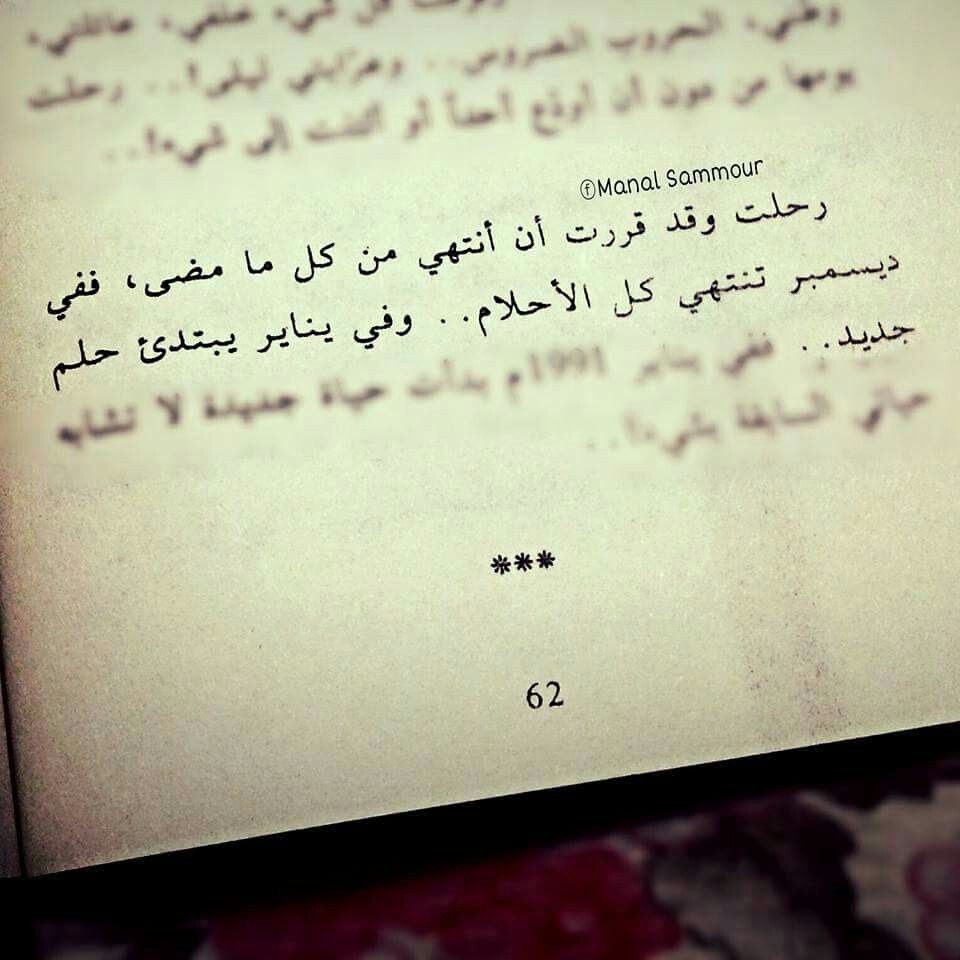 كل شيء خلفي، عائلتي،
وطني، الحروب الضروس.. وعرّابتي ليلى!.. رحلت
يومها من دون أن أودّع أحداً أو ألتفت إلى شيء!..
ⓕManal Sammour
رحلت وقد قررت أن أنتهي من كل ما مضى، ففي
ديسمبر تنتهي كل الأحلام.. وفي يناير يبتدئ حلم
جديد.. ففي يناير 1991م بدأت حياة جديدة لا تشابه
حياتي السابقة بشيء!..
***
62